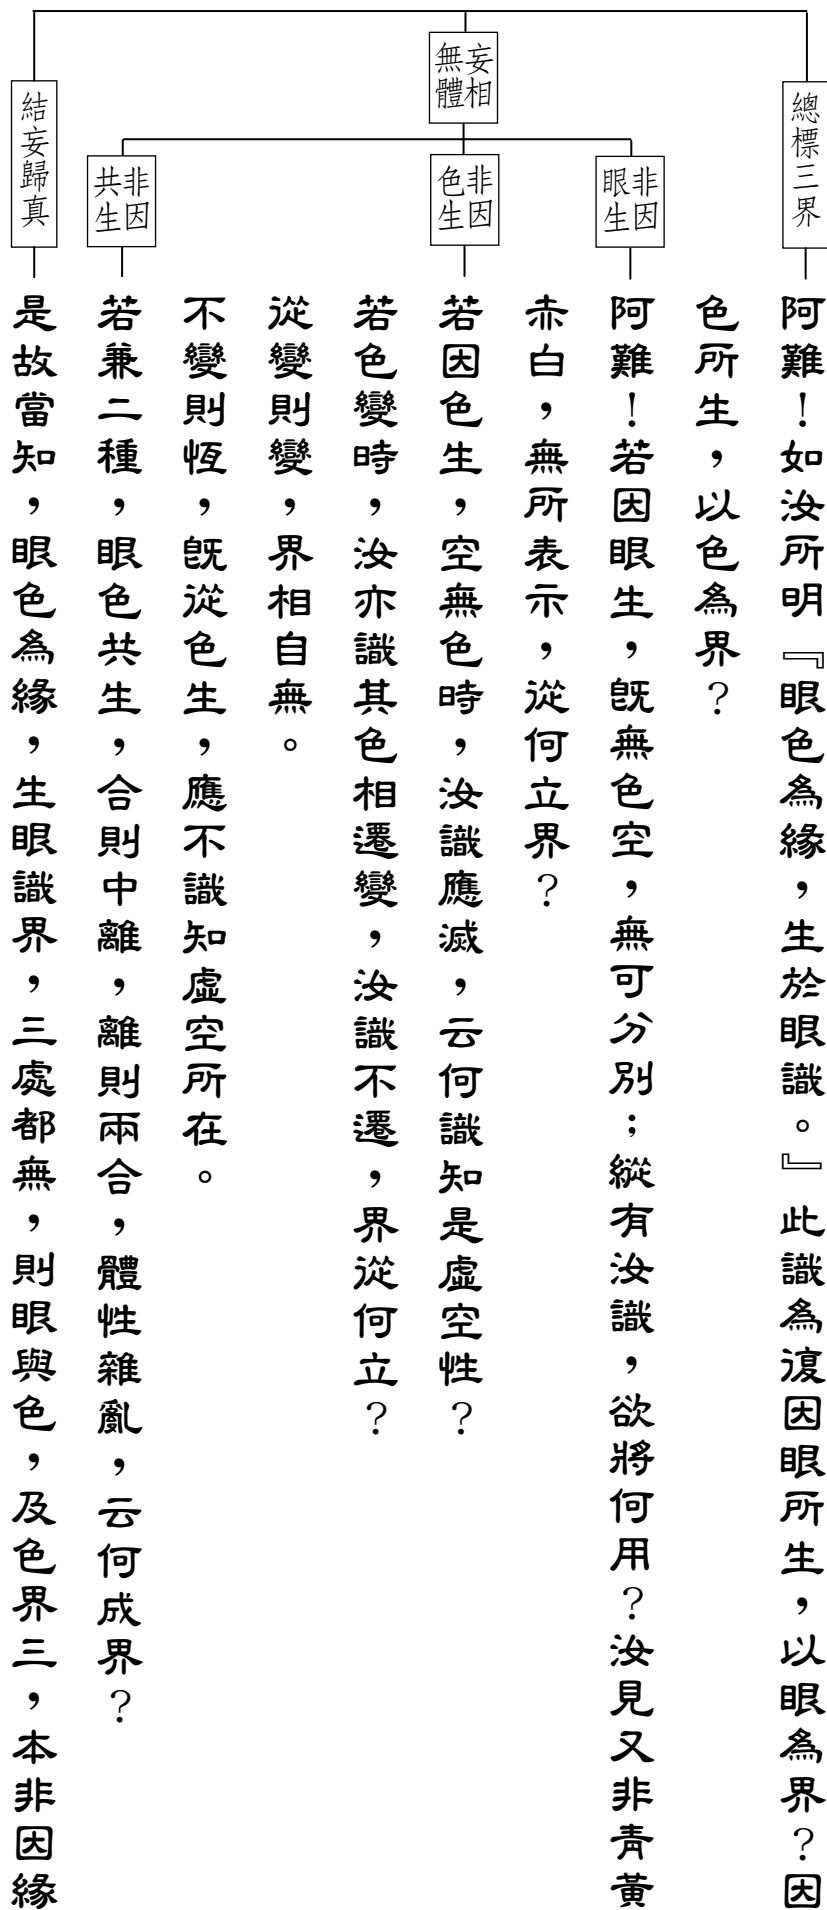 總標三界
妄相
無體
結妄歸真
非因
眼生
非因
色生
非因
共生
阿難！如汝所明『眼色為緣，生於眼識。』此識為復因眼所生，以眼為界？因
色所生，以色為界？
阿難！若因眼生，既無色空，無可分別；縱有汝識，欲將何用？汝見又非青黃
赤白，無所表示，從何立界？
若因色生，空無色時，汝識應滅，云何識知是虛空性？
若色變時，汝亦識其色相遷變，汝識不遷，界從何立？
從變則變，界相自無。
不變則恆，既從色生，應不識知虛空所在。
若兼二種，眼色共生，合則中離，離則兩合，體性雜亂，云何成界？
是故當知，眼色為緣，生眼識界，三處都無，則眼與色，及色界三，本非因緣